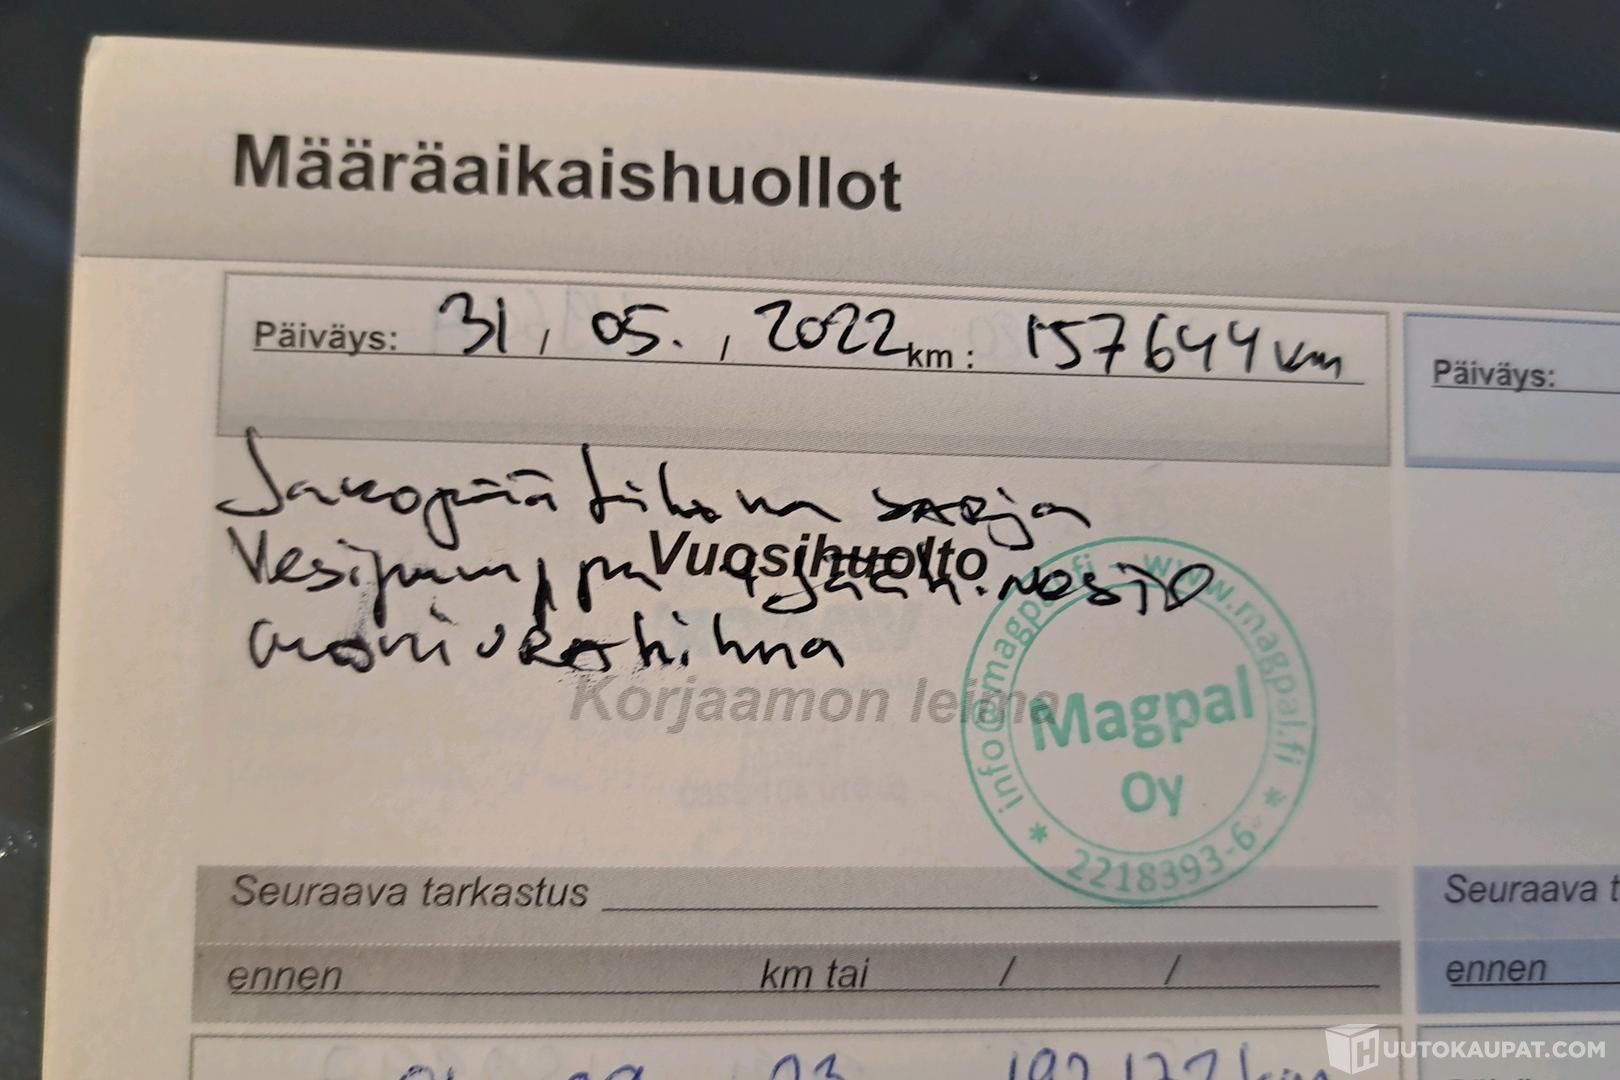 Määräaikaishuollot
Päiväys: 31 / 05. / 2022 km: 157644 km
Päiväys:
Jakopää hihna sarja
Vesipumppu jääh. nestE
Vuosihuolto
moniurahihna
Korjaamon leima
info@magpal.fi www.magpal.fi
Magpal
Oy
* 2218393-6 *
Seuraava tarkastus
Seuraava t
ennen km tai / /
ennen
192177 km
HUUTOKAUPAT.COM